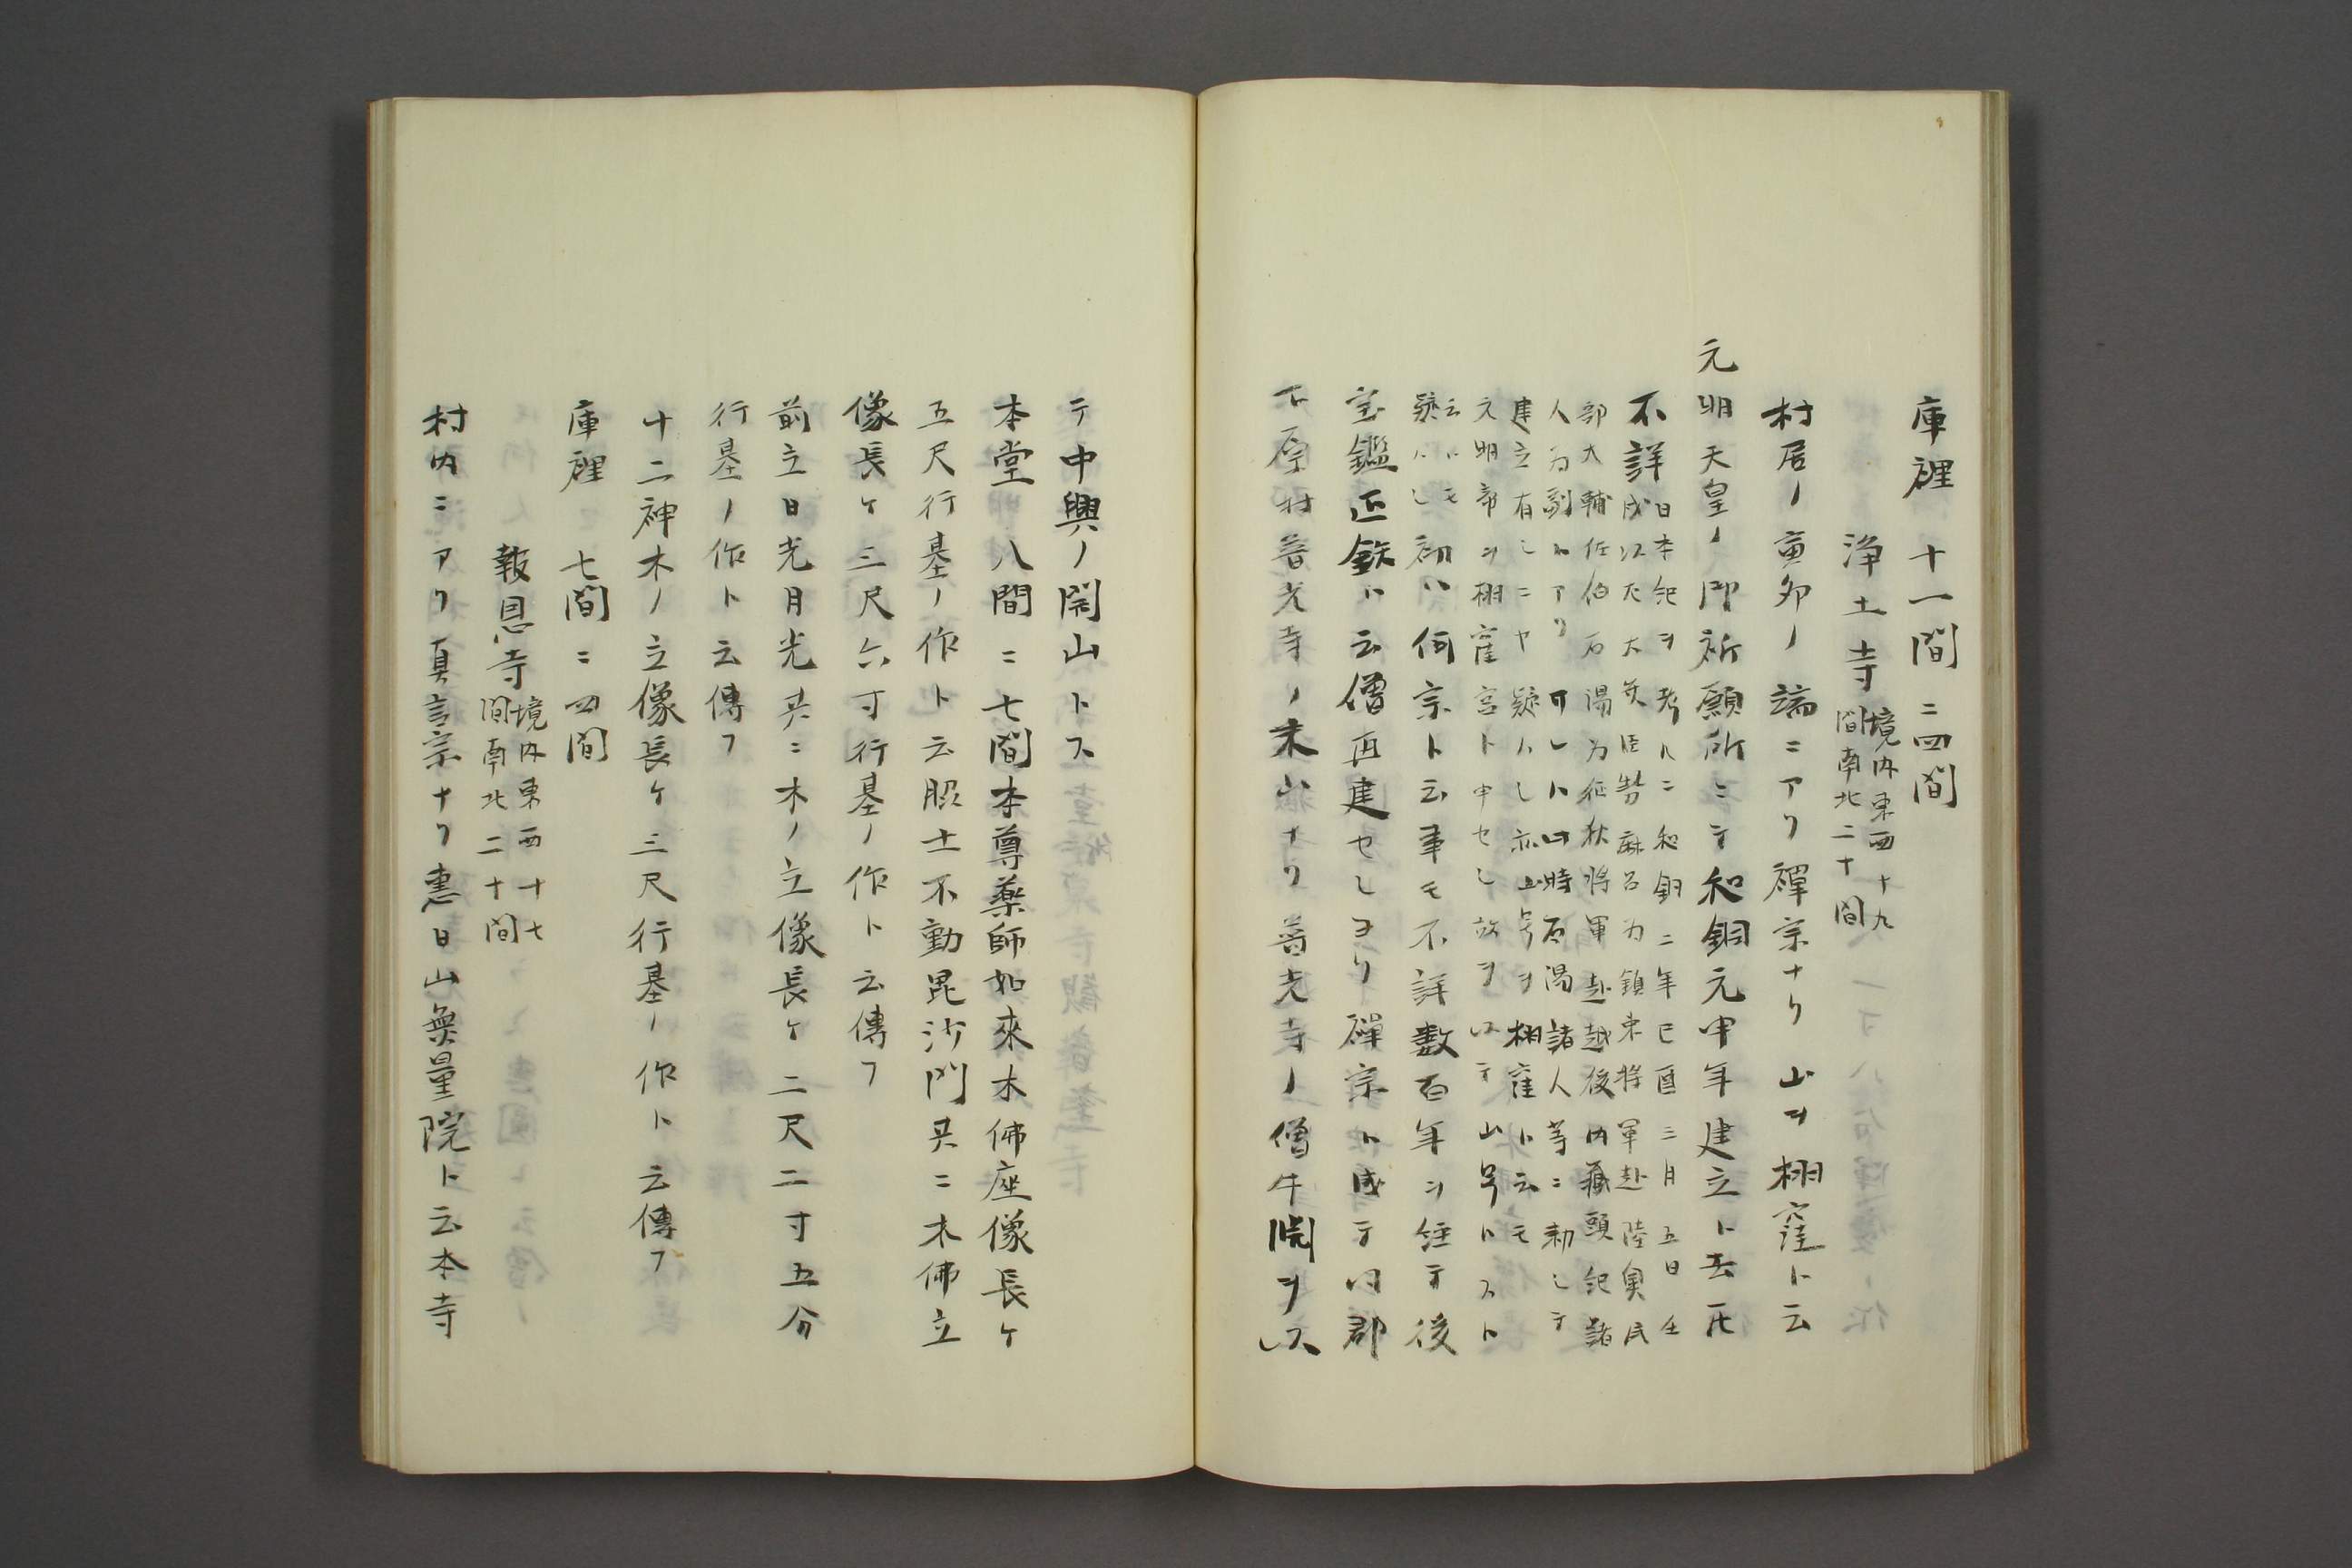 庫裡 十一間ニ四間
浄土寺 境内東西十九
間南北二十間
村居ノ寅卯ノ端ニアリ禅宗ナリ 山ヲ栩窪ト云
元明天皇ノ御祈願所ニシテ和銅元申年建立ト云氏
不詳 日本紀ヲ考ルニ和銅二年己酉三月五日壬
戌以左大弁巨勢麻呂為鎮東将軍赴陸奥民
部大輔佐伯石湯為征狄将軍赴越後内蔵頭紀諸
人為副トアリ 可レハ此時石湯諸人等ニ勅シテ
建立有シニヤ疑ハし亦山号ヲ栩窪ト云モ
元明帝ヲ栩窪宮ト申セし故ヲ以テ山号トスト
云ハモ
疑ハし初ハ何宗ト云事モ不詳数百年ヲ経テ後
宝鑑正鉄ト云僧再建セしヨリ禅宗ト成テ同郡
下原村普光寺ノ末山ナリ普光寺ノ僧牛関ヲ以
テ中興ノ開山トス
本堂 八間ニ七間本尊薬師如來木佛座像長ケ
五尺行基ノ作ト云脇士不動毘沙門共ニ木佛立
像長ケ三尺六寸行基ノ作ト云傳フ
前立日光月光共ニ木ノ立像長ケ二尺二寸五分
行基ノ作ト云傳フ
十二神木ノ立像長ケ三尺行基ノ作ト云傳フ
庫裡 七間ニ四間
報恩寺 境内東西十七
間南北二十間
村内ニアリ真言宗ナリ惠日山無量院ト云本寺